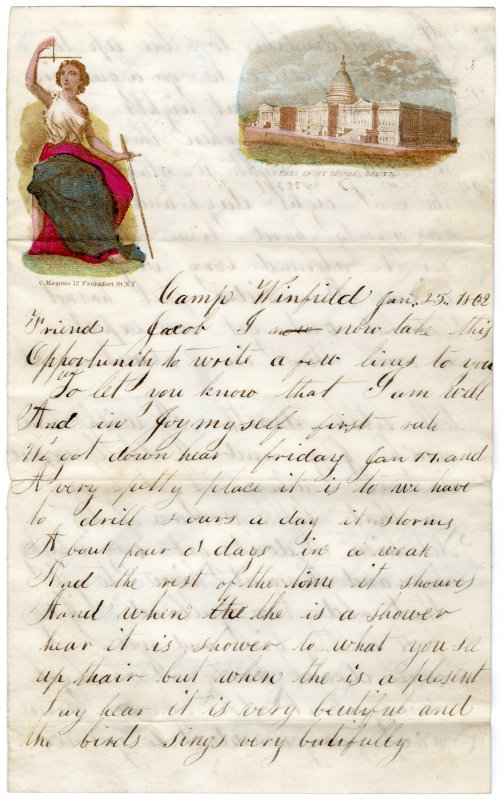 EAST FRONT OF THE CAPITOL
C. Magnus 12 Frankfort St. N.Y.
Camp Winfield Jan. 25. 1862
Friend Jacob I now now take this
Opportunity to write a few lines to you
To let you know that I am Well
And in Joy my self first rate
We got down hear friday Jan 17. and
A very petty place it is to we have
to drill 8 ours a day it storms
A bout four days in a weak
And the rest of the time it shoures
Aand when the the is a shower
hear it is shower to what you se
up thair but when the is a plesent
Day hear it is very beutiful and
the birds sings very butifully